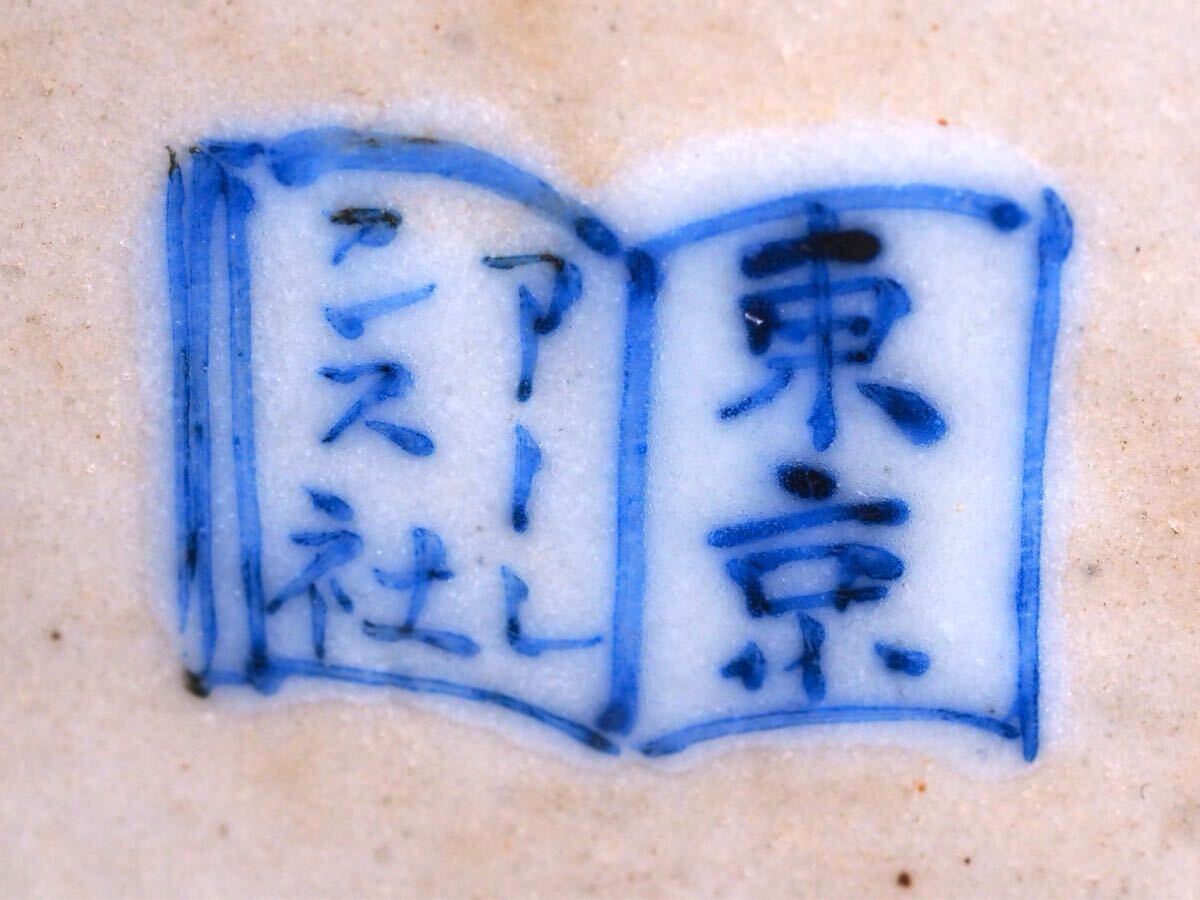 東京
アーレ
ンス社